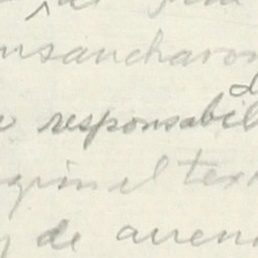 de
ensancharon
responsabil
d
según el tex
y de arren